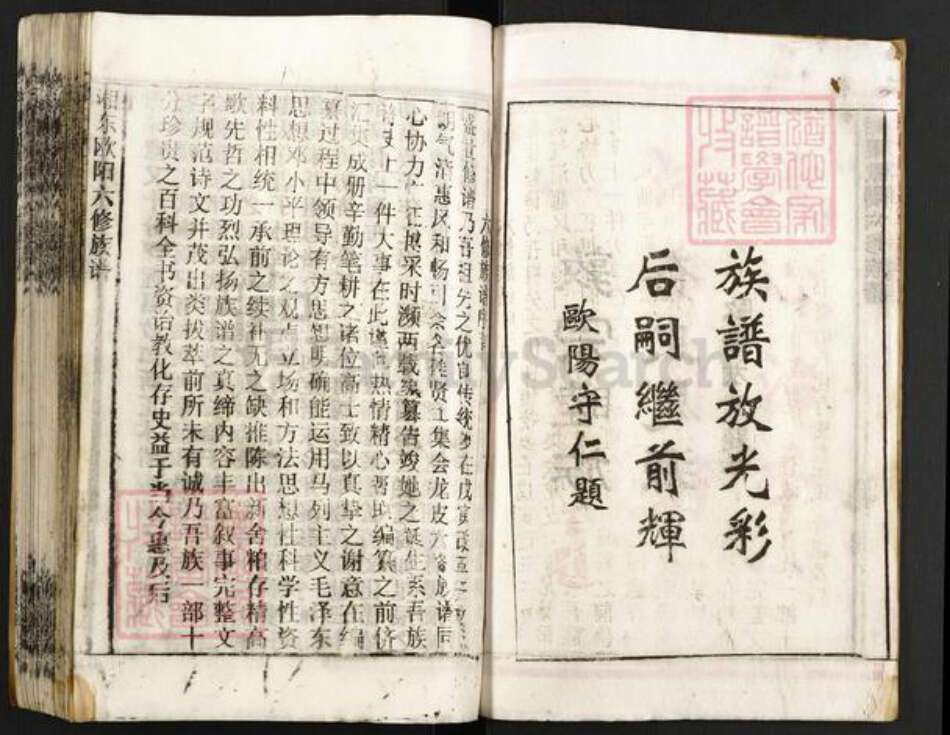 族譜放光彩
后嗣繼前輝
歐陽守仁題
猶他家譜學會收藏
六修族谱序
盛世修谱乃吾祖先之优良传统 在戊寅
朗气清惠风和畅 贤集会龙皮 族谱同
心协力广征博采时濒两载编纂告竣她之诞生系吾族
上一件大事在此谨 热情精心 编纂之前侪
汇集成册辛勤笔耕之诸位高士致以真挚之谢意在编
纂过程中领导有方思想明确能运用马列主义毛泽东
思想邓小平理论之观点立场和方法思想性科学性资
料性相统一承前之续补无之缺推陈出新舍粕存精高
歌先哲之功烈弘扬族谱之真缔内容丰富叙事完整文
字规范诗文并茂出类拔萃前所未有诚乃吾族一部十
分珍贵之百科全书资治教化存史益于当今惠及后
湘东欧阳六修族谱
FamilySearch